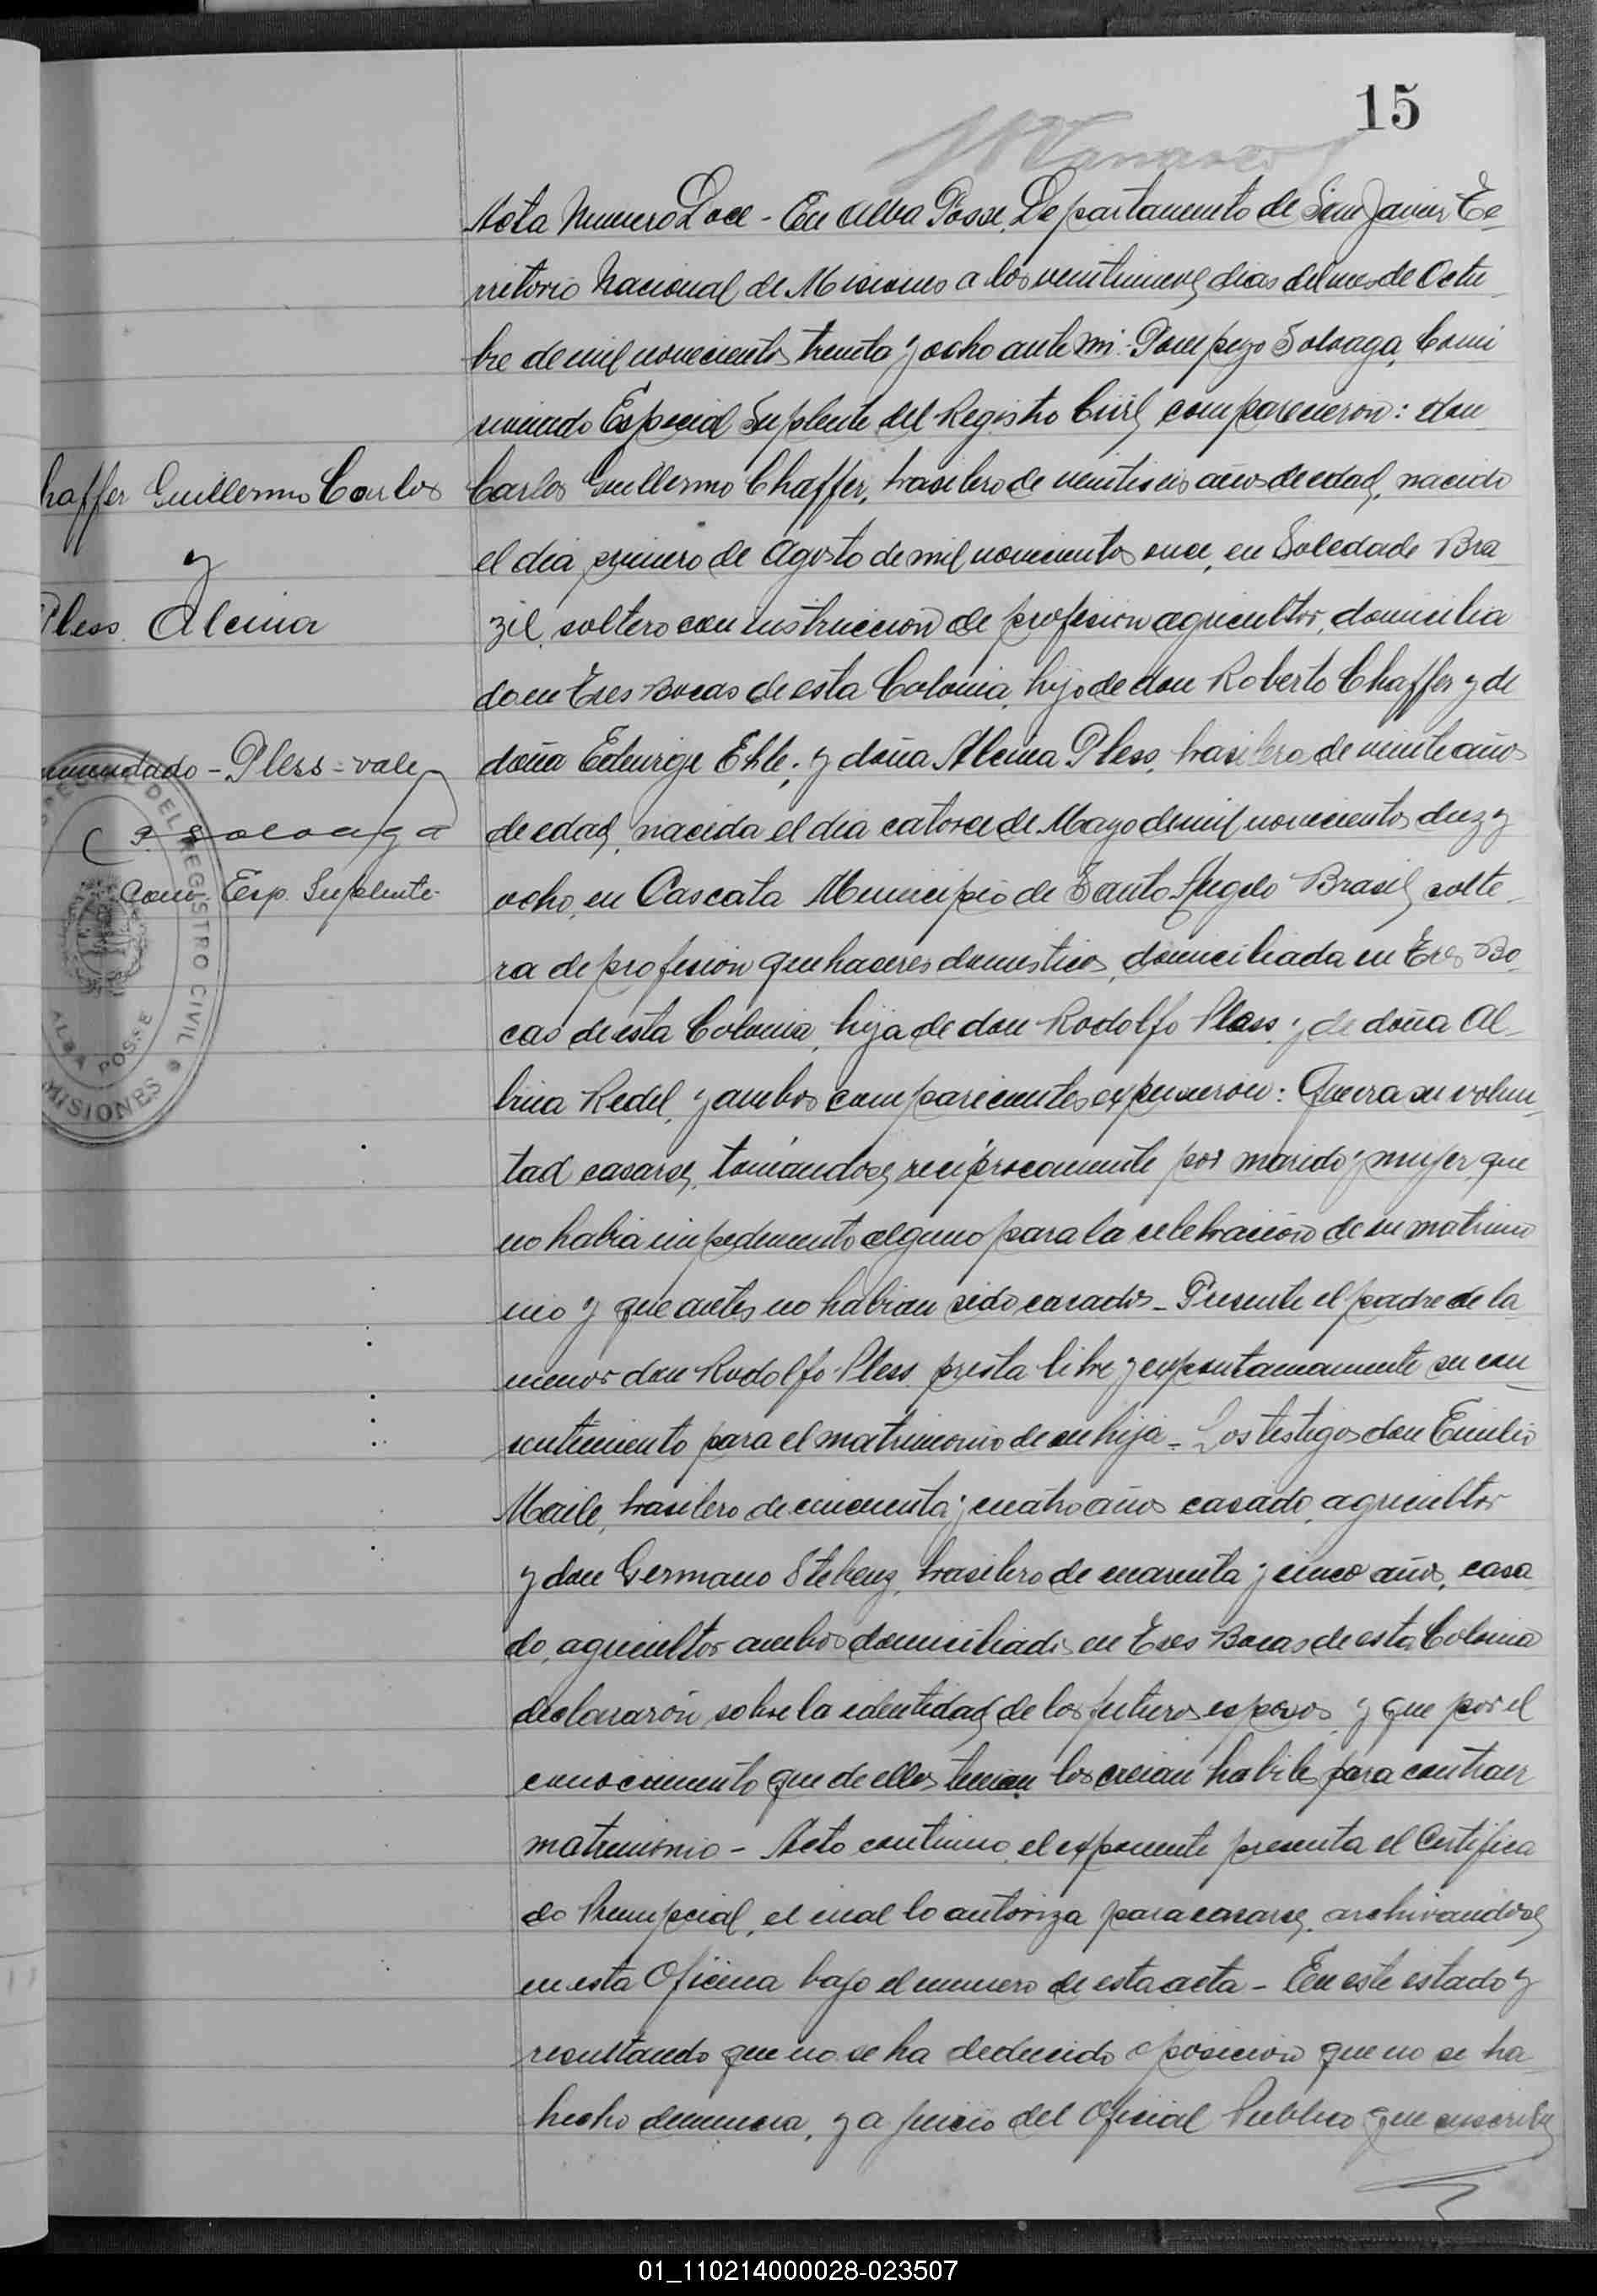 15
Acta Numero Doce - En Alba Posse, Departamento de San Javier Te-
rritorio Nacional de Misiones a los veintinueve dias del mes de Octu-
bre de mil novecientos treinta y ocho ante mi: Pompeyo Soloaga, Comi
sionado Especial Suplente del Registro Civil comparecieron: don
Carlos Guillermo Chaffer, brasilero de veintiseis años de edad, nacido
el dia primero de Agosto de mil novecientos once, en Soledade Bra
zil, soltero con instruccion de profesion agricultor, domicilia
do en Tres Bocas de esta Colonia, hijo de don Roberto Chaffer y de
doña Eduvige Ehle; y doña Alcina Pless, brasilera de veinte años
de edad, nacida el dia catorce de Mayo de mil novecientos diez y
ocho, en Cascata Municipio de Santo Angelo Brasil, solte-
ra de profesion quehaceres domesticos, domiciliada en Tres Bo-
cas de esta Colonia, hija de don Rodolfo Pless y de doña Al-
bina Redel, y ambos comparecientes expusieron: Que era su volun-
tad casarse, tomándose recíprocamente por marido y mujer, que
no habia impedimento alguno para la celebracion de su matrimo
nio y que antes no habian sido casados - Presente el padre de la
menor don Rodolfo Pless presta libre y expontaneamente su con-
sentimiento para el matrimonio de su hija - Los testigos don Emilio
Maile, brasilero de cincuenta y cuatro años casado, agricultor
y don Germano, brasilero de cuarenta y cinco años, casa
do, agricultor ambos domiciliados en Tres Bocas de esta Colonia
declararón sobre la identidad de los futuros esposos y que por el
conocimiento que de ellos tenian los creian habiles para contraer
matrimonio - Acto continuo, el exponente presenta el Certifica
do Prenupcial, el cual lo autoriza para casarse, archivandose
en esta Oficina bajo el numero de esta acta - En este estado y
resultando que no se ha deducido oposicion que no se ha
hecho denuncia, y a juicio del Oficial Publico que suscribe
haffer Guillermo Carlos
y
Pless Alcina
enmendado - Pless - vale
P. Soloaga
Com. Esp. Suplente
DEL REGISTRO CIVIL
ALBA POSSE
MISIONES
01_110214000028-023507